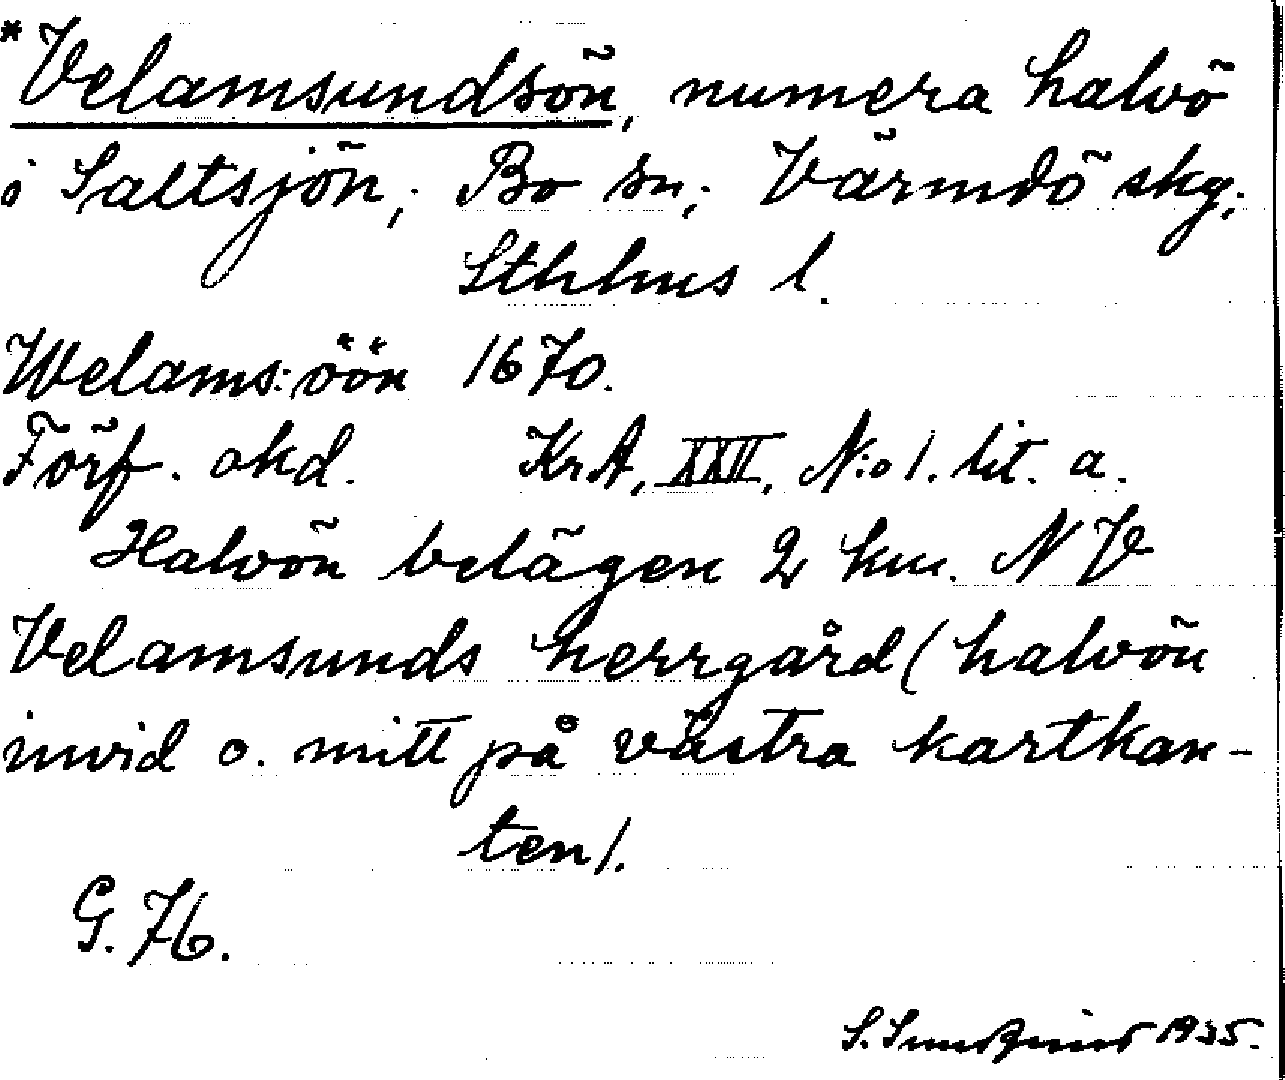 *Velamsundsön, numera halvö
i Saltsjön; Bo sn; Värmdö skg;
Sthlms l.
Welams:öön 1670.
Förf. okd. KrA, XXII, N:o 1. lit. a.
Halvön belägen 2 km. NV
Velamsunds herrgård (halvön
invid o. mitt på västra kartkan-
ten).
G. 76.
S. 1935.